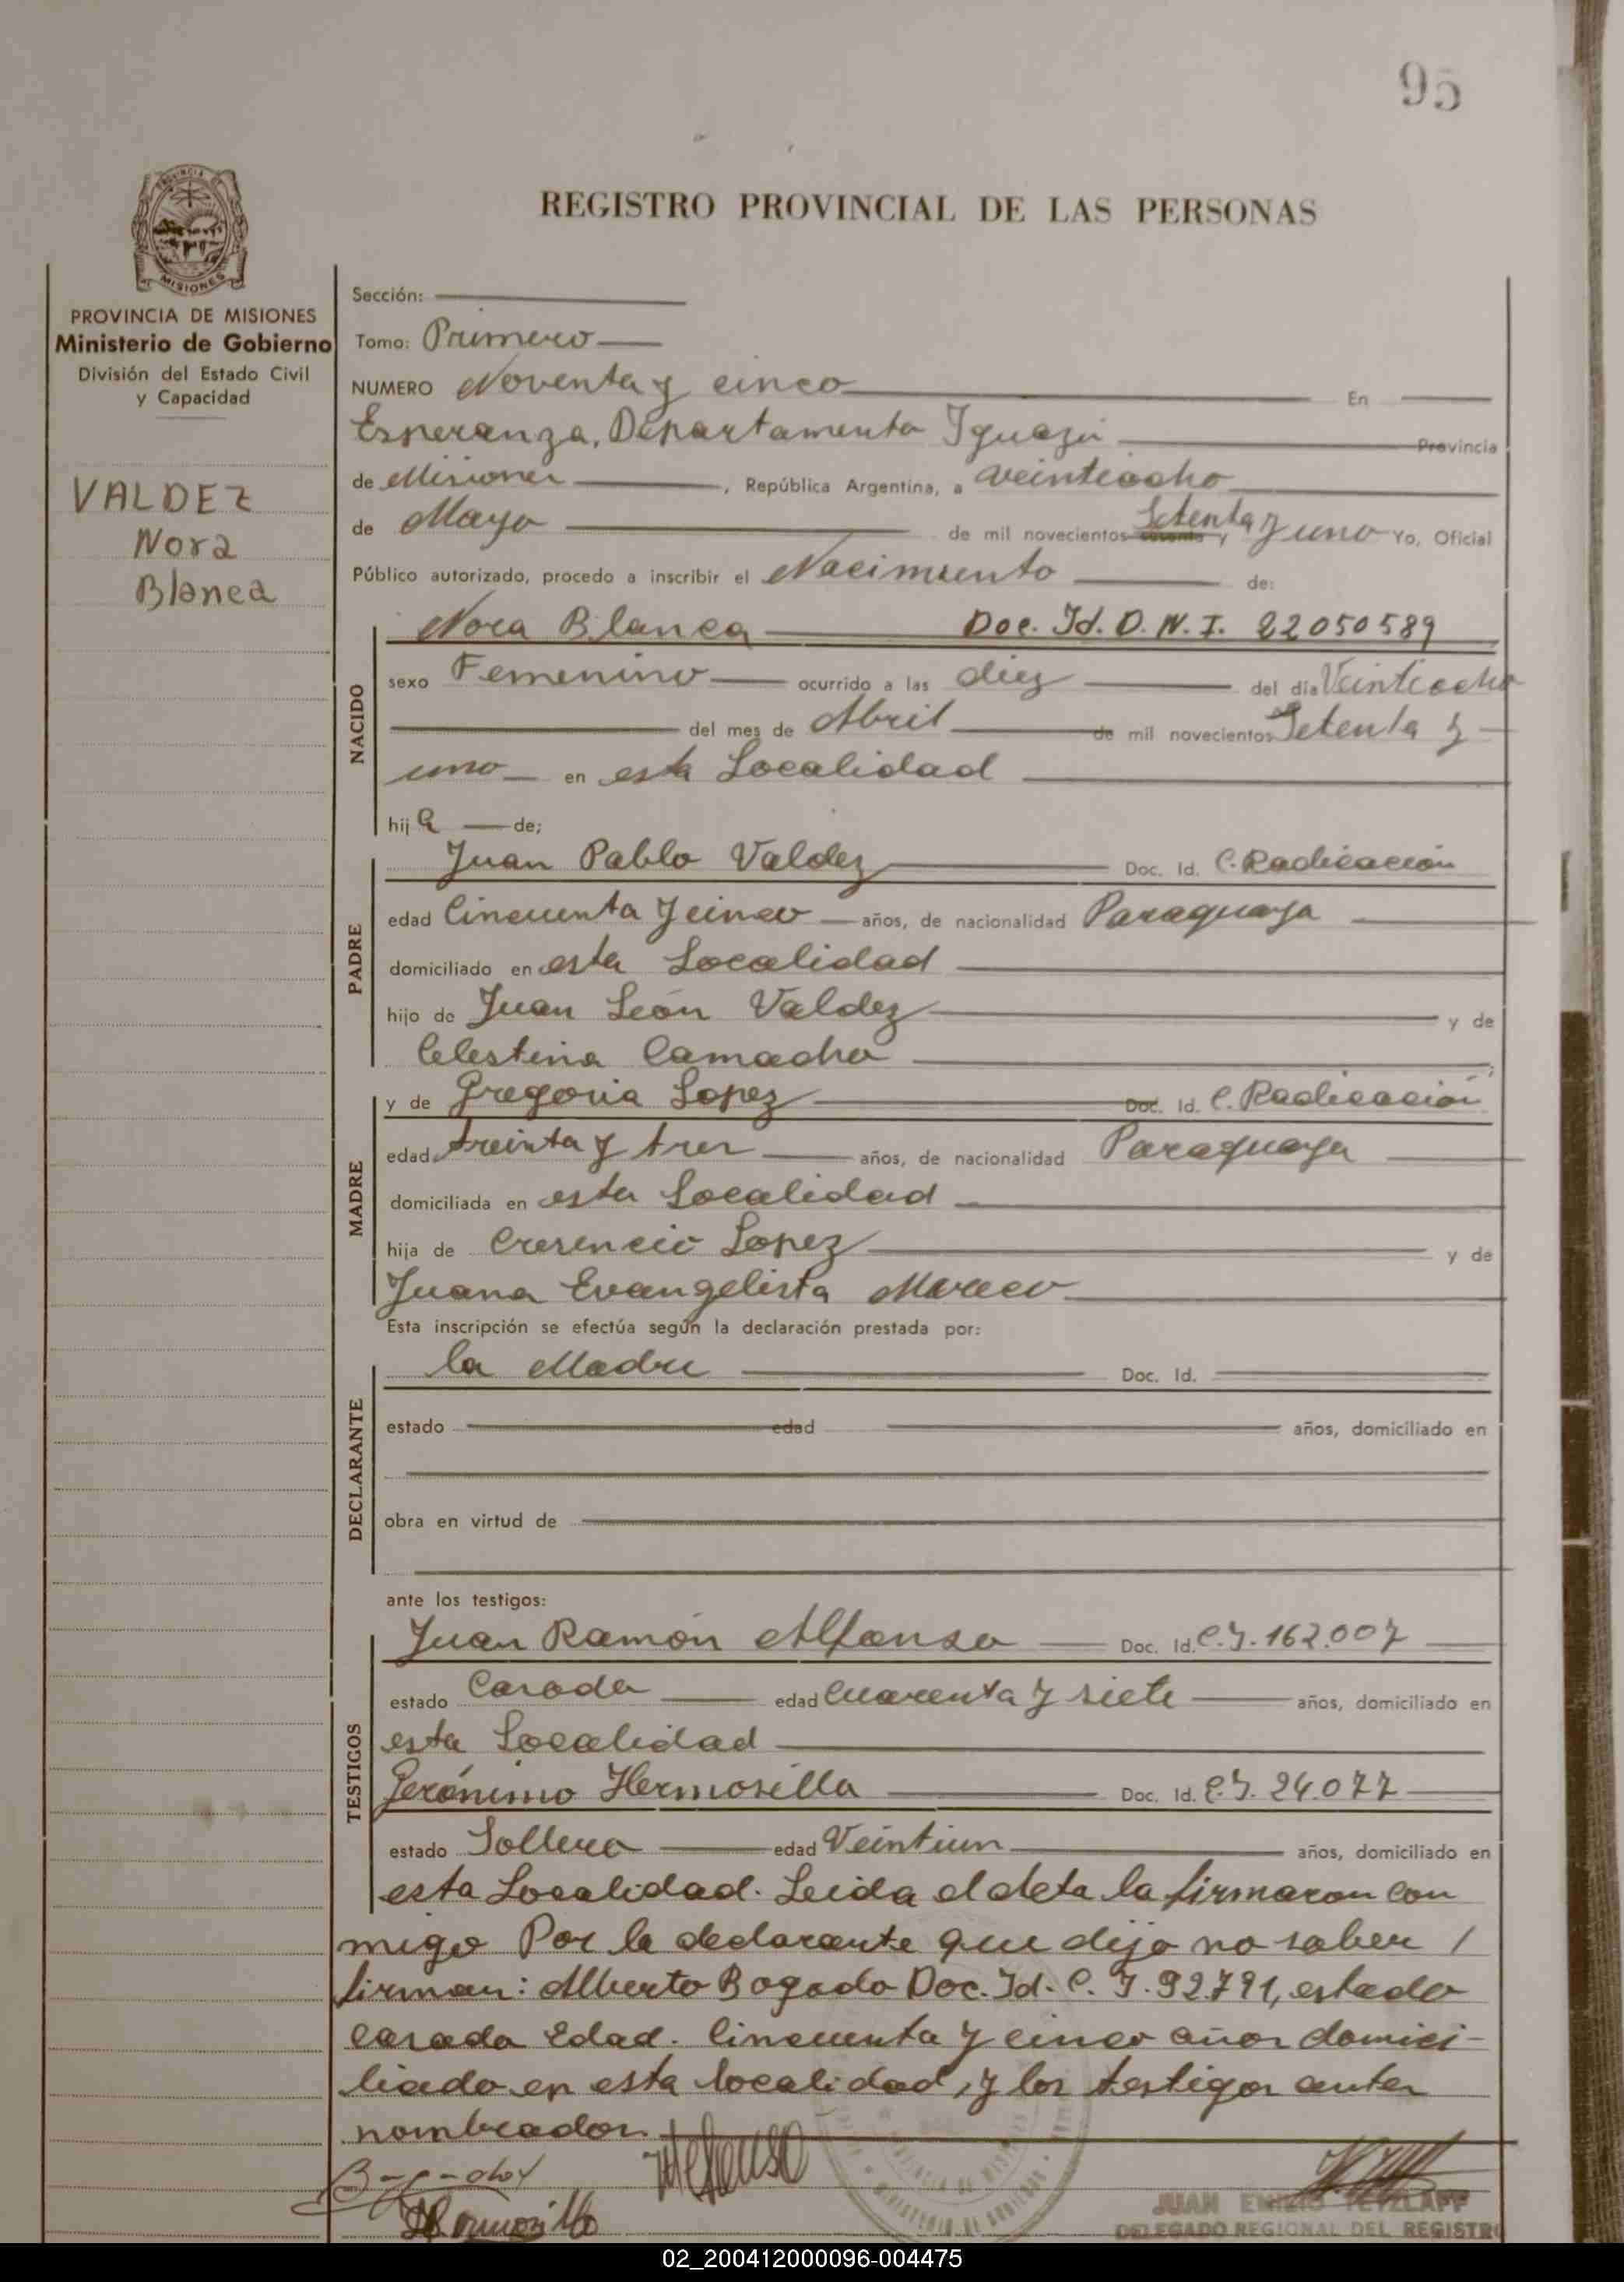 95
REGISTRO PROVINCIAL DE LAS PERSONAS
MISIONES
PROVINCIA DE MISIONES
Ministerio de Gobierno
División del Estado Civil
y Capacidad
VALDEZ
Nora
Blanca
Sección:
Tomo: Primero
NUMERO Noventa y cinco En
Esperanza, Departamento Iguazú Provincia
de Misiones, República Argentina, a veintiocho
de Mayo de mil novecientos setenta y uno Yo, Oficial
Público autorizado, procedo a inscribir el Nacimiento de:
NACIDO
Nora Blanca Doc. Id. D.N.I. 22050589
sexo Femenino ocurrido a las diez del día Veintiocho
del mes de Abril de mil novecientos Setenta y
uno en esta Localidad
hija de;
PADRE
Juan Pablo Valdez Doc. Id. C. Radicación
edad Cincuenta y cinco años, de nacionalidad Paraguaya
domiciliado en esta Localidad
hijo de Juan León Valdez y de
Celestina Camacho
MADRE
y de Gregoria Lopez Doc. Id. C. Radicación
edad treinta y tres años, de nacionalidad Paraguaya
domiciliada en esta Localidad
hija de Cresencio Lopez y de
Juana Evangelista
Esta inscripción se efectúa según la declaración prestada por:
DECLARANTE
la Madre Doc. Id.
estado edad años, domiciliado en
obra en virtud de
ante los testigos:
TESTIGOS
Juan Ramón Alfonso Doc. Id. C.I. 162.007
estado Casado edad Cuarenta y siete años, domiciliado en
esta Localidad
Gerónimo Hermosilla Doc. Id. C.I. 24.077
estado Soltero edad Veintiun años, domiciliado en
esta Localidad. Leida el Acta la firmaron con
migo Por la declarante que dijo no saber /
firmar: Alberto Bogado Doc. Id. C. I. 92.791, estado
casado Edad. Cincuenta y cinco años domici-
liado en esta localidad, y los testigos antes
nombrados.
JUAN EMILIO TETZLAFF
DELEGADO REGIONAL DEL REGISTRO
02_200412000096-004475